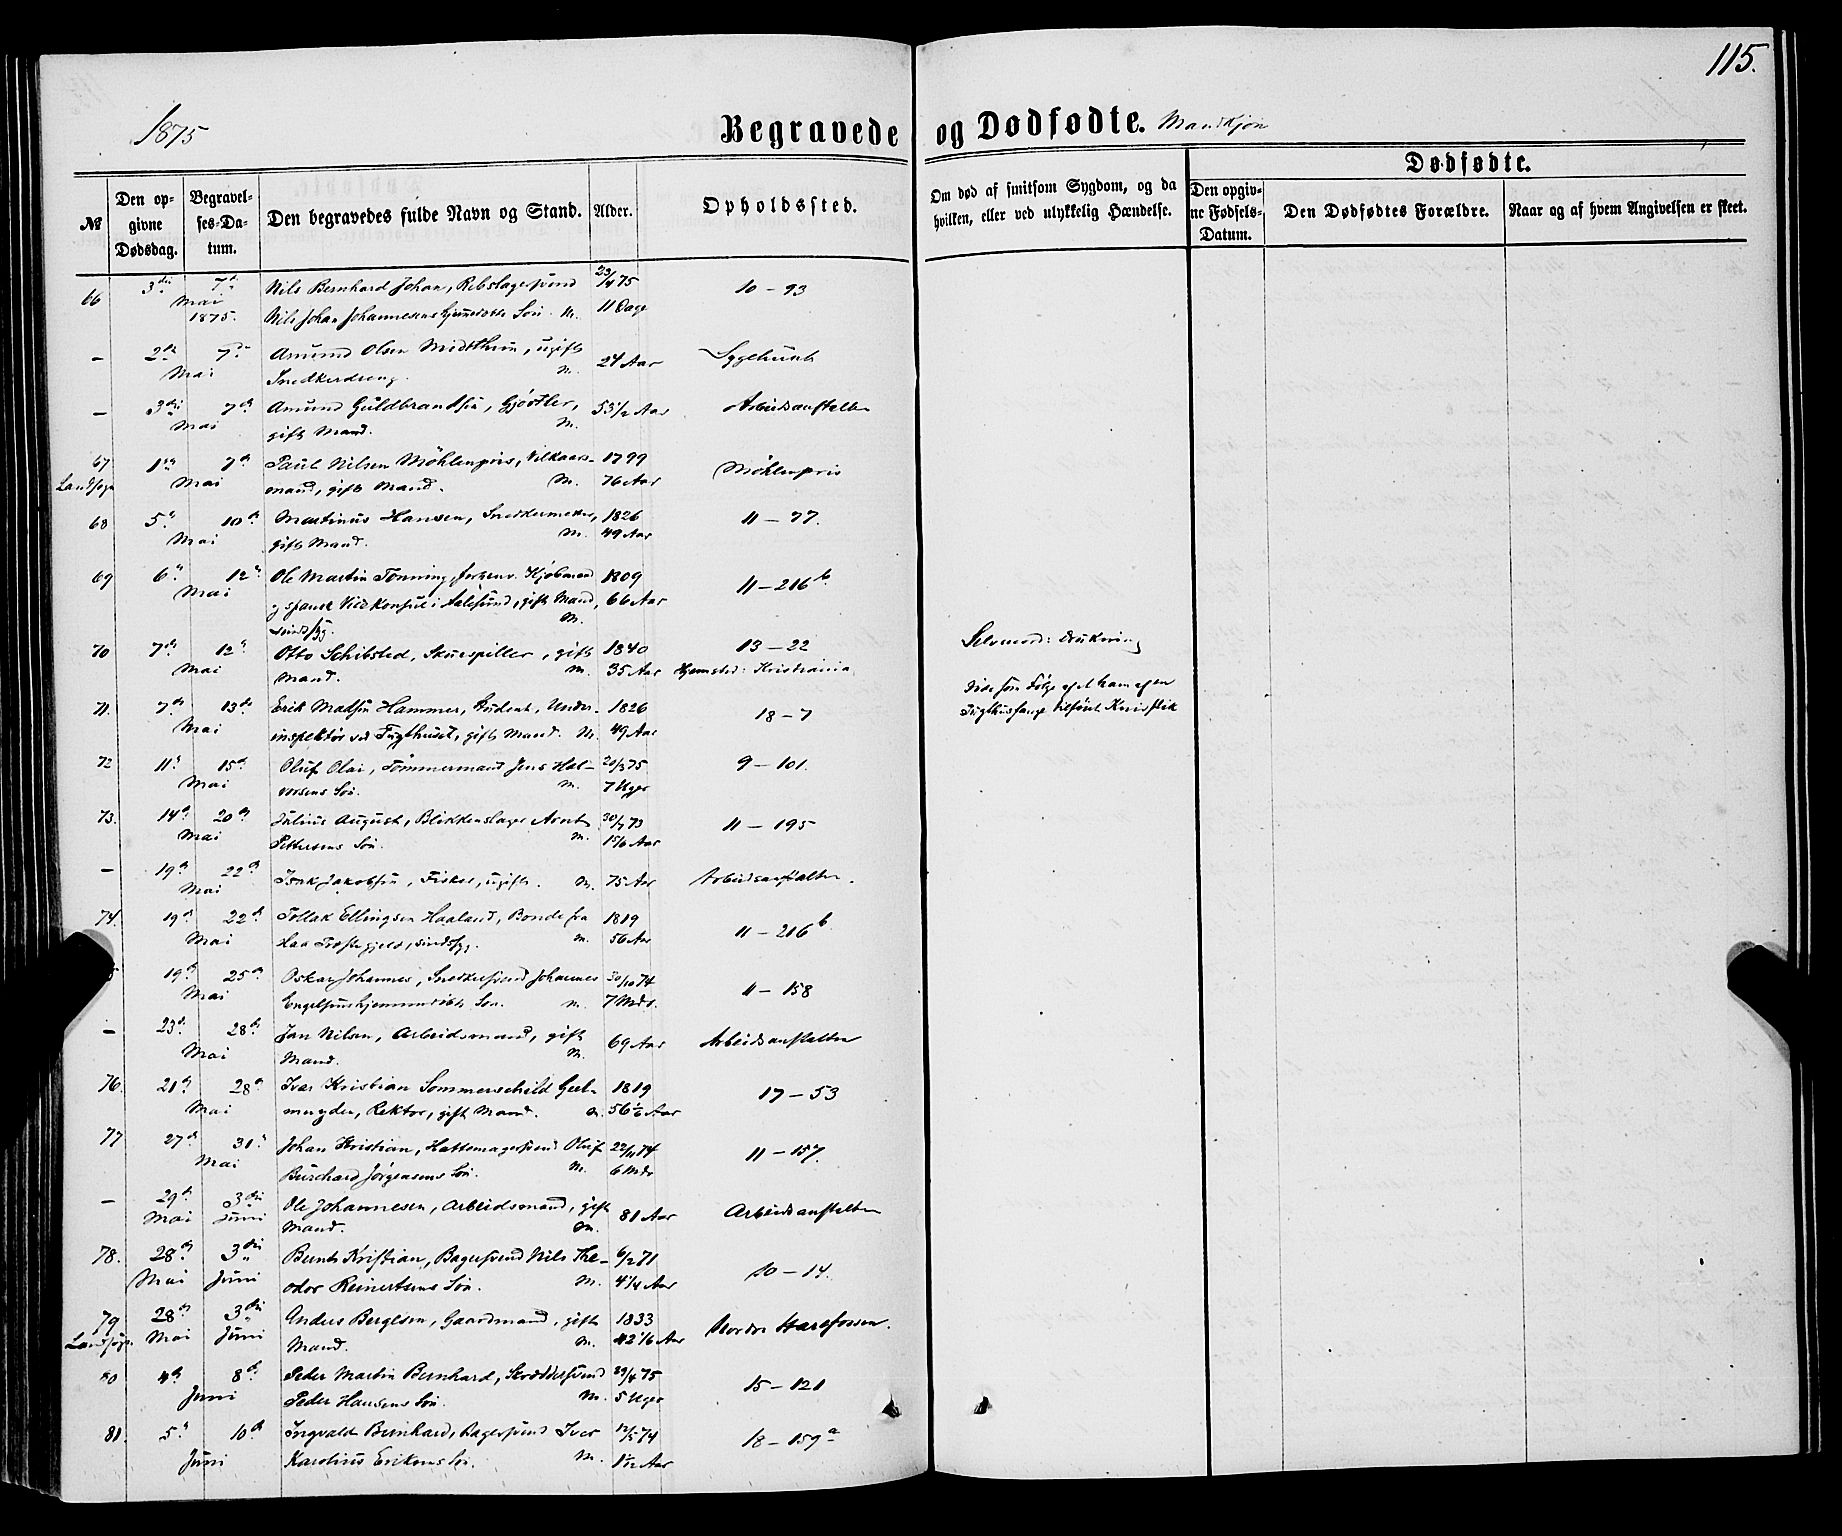 115.
1875
Begravede og Dødfødte. Mandkjøn
Dødfødte.
№
Den opgivne Dødsdag.
Begravelses-Datum.
Den begravedes fulde Navn og Stand.
Alder.
Opholdssted.
Om død af smitsom Sygdom, og da hvilken, eller ved ulykkelig Hændelse.
Den opgivne Fødsels-Datum.
Den Dødfødtes Forældre.
Naar og af hvem Angivelsen er skeet.
66 3die 7de Nils Bernhard Johan, Rebslagersvend 23/4 75 10 – 93
Mai 1875. Nils Johan Johannesens hjemmedøbte Søn. M. 11 Dage
– 2den 7de Amund Olsen Midtthun, ugift 24 Aar Sygehuset
Mai Snedkerdreng. M.
– 3die 7de Amund Guldbrandsen, Gjørtler, 53 1/2 Aar Arbeidsanstalten
Mai gift Mand. M.
67 1ste 7de Paul Nilsen Möhlenpris, Vilkaars- 1799 Möhlenpris
Landsogn Mai mand, gift Mand. M. 76 Aar
68 5te 10de Martinus Hansen, Snedkermester, 1826 11 – 77.
Mai gift Mand. M. 49 Aar
69 6te 12te Ole Martin Tonning, forhenv. Kjøbmand 1809 11 – 216 b.
Mai og spansk Vicekonsul i Aalesund, gift Mand, 66 Aar
sindssyg. M.
70 7de 12te Otto Schibsted, Skuespiller, gift 1840 13 – 22 Selvmord: Drukning
Mai Mand. M. 35 Aar Hjemsted: Kristiania
71. 7de 13de Erik Madsen Hammer, Student, Under- 1826 18 – 7 døde som Følge af et ham af en
Mai inspektør ved Tugthuset, gift Mand. M. 49 Aar Tugthusfange tilføiet Knivstik
72 11te 15de Oluf Olai, Tömmermand Jens Hal- 20/3 75 9 – 101.
Mai vorsens Søn. M. 7 Uger
73. 14de 20de Julius August, Blikkenslager Arent 30/7 73 11 – 195
Mai Pettersens Søn. M. 1 5/6 Aar
– 19de 22de Isak Jakobsen, Fisker, ugift. M. 75 Aar Arbeidsanstalten.
Mai
74. 19de 22de Tollak Ellingsen Haaland, Bonde fra 1819 11 – 216 b.
Mai Haa Præstegjeld, sindssyg. M. 56 Aar
5 19de 25de Oskar Johannes, Snedkersvend Johannes 30/10 74 11 – 158
Mai Engelsens hjemmedøbte Søn. M. 7 Mdr.
– 23de 28de Jan Nilsen, Arbeidsmand, gift 69 Aar Arbeidsanstalten
Mai Mand. M.
76. 21de 28de Ivar Kristian Sommerschild Geel- 1819 17 – 53
Mai muyden, Rektor, gift Mand. M. 56 1/6 Aar
77 27de 31te Johan Kristian, Hattemagersvend Oluf 22/11 74 11 – 157.
Mai Burchard Jørgensens Søn. M. 6 Mdr
– 29de 3die Ole Johannesen, Arbeidsmand, gift 81 Aar Arbeidsanstalten
Mai Juni Mand. M.
78. 28de 3die Bernt Kristian, Bagersvend Nils The- 6/2 71 10 – 14.
Mai Juni odor Reinertsens Søn. M. 4 1/4 Aar
79 28de 3die Anders Bergesen, Gaardmand, gift 1833 Nordre Starefossen.
Landsogn Mai Juni Mand. M. 42 1/6 Aar
80 4de 8de Peder Martin Bernhard, Skræddersvend 29/4 75 15 – 121
Juni Peder Hansens Søn. M. 5 Uger
81. 5te 10de Ingvald Bernhard, Bagersvend Iver 12/5 74 18 – 159 a
Juni Karolius Eriksens Søn. M. 1 1/12 Aar